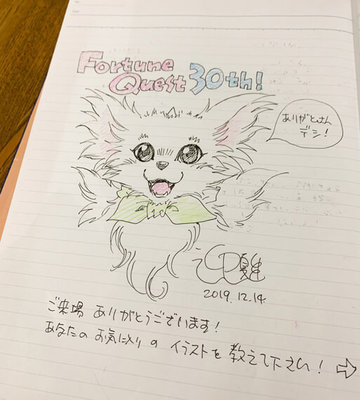 Fortune
Quest 30th!
ありがとさん
デシ！
2019.12.14
ご来場 ありがとうございます！
あなたの お気に入り の イラストを 教えて下さい！